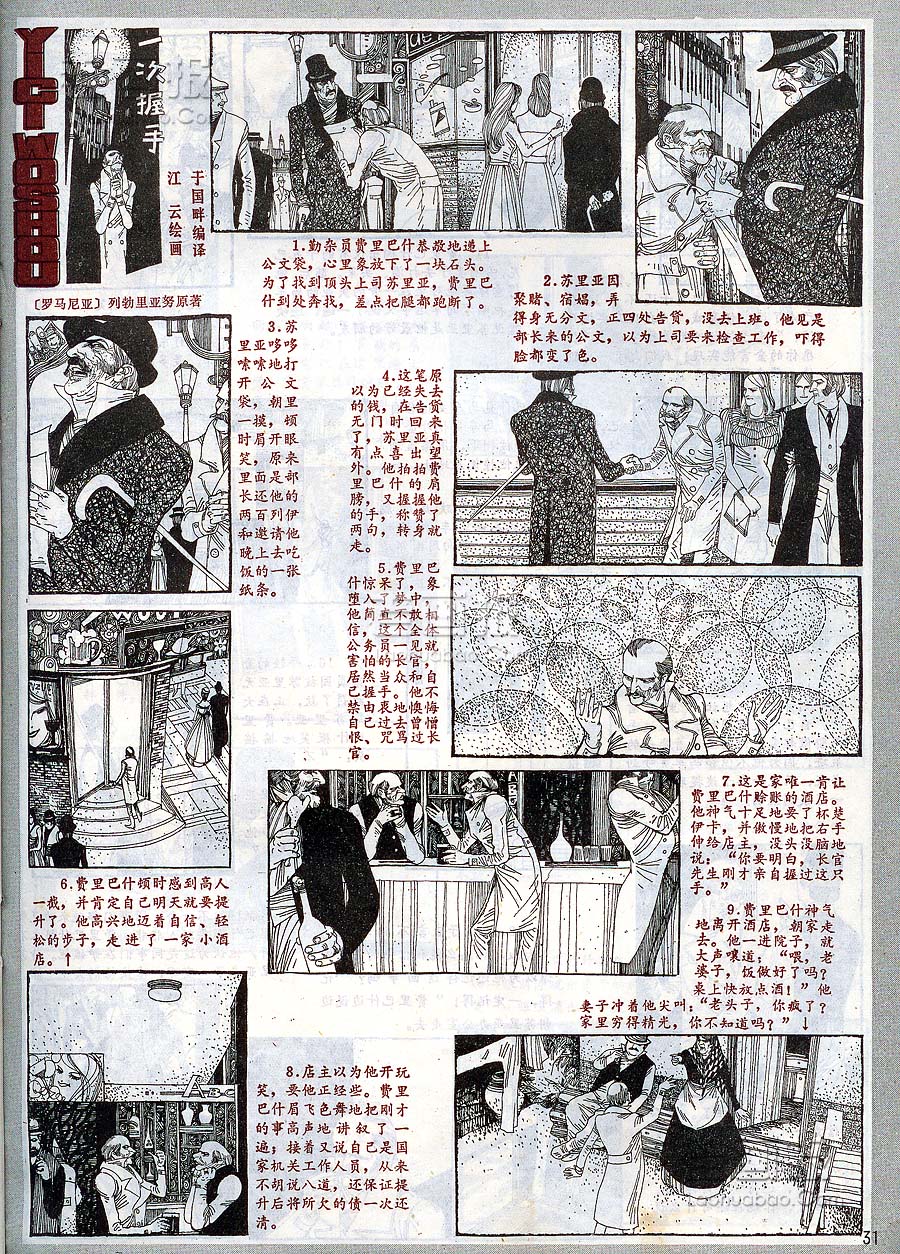 一次握手
于国畔编译
江 云绘画
〔罗马尼亚〕列勃里亚努原著
1.勤杂员费里巴什恭敬地递上
公文袋，心里象放下了一块石头。
为了找到顶头上司苏里亚，费里巴
什到处奔找，差点把腿都跑断了。
2.苏里亚因
聚赌、宿娼，弄
得身无分文，正四处告贷，没去上班。他见是
部长来的公文，以为上司要来检查工作，吓得
脸都变了色。
3.苏
里亚哆哆
嗦嗦地打
开公文
袋，朝里
一摸，顿
时眉开眼
笑，原来
里面是部
长还他的
两百列伊
和邀请他
晚上去吃
饭的一张
纸条。
4.这笔原
以为已经失去
的钱，在告贷
无门时回来
了，苏里亚真
有点喜出望
外。他拍拍费
里巴什的肩
膀，又握握他
的手，称赞了
两句，转身就
走。
5.费里巴
什惊呆了，象
堕入了梦中，
他简直不敢相
信，这个全体
公务员一见就
害怕的长官，
居然当众和自
己握手。他不
禁由衷地懊悔
自己过去曾憎
恨、咒骂过长
官。
6.费里巴什顿时感到高人
一截，并肯定自己明天就要提
升了。他高兴地迈着自信、轻
松的步子，走进了一家小酒
店。↑
7.这是家唯一肯让
费里巴什赊账的酒店。
他神气十足地要了杯楚
伊卡，并傲慢地把右手
伸给店主，没头没脑地
说：“你要明白，长官
先生刚才亲自握过这只
手。”
8.店主以为他开玩
笑，要他正经些。费里
巴什眉飞色舞地把刚才
的事高声地讲叙了一
遍；接着又说自己是国
家机关工作人员，从来
不胡说八道，还保证提
升后将所欠的债一次还
清。
9.费里巴什神气
地离开酒店，朝家走
去。他一进院子，就
大声嚷道：“喂，老
婆子，饭做好了吗？
桌上快放点酒！”他
妻子冲着他尖叫：“老头子，你疯了？
家里穷得精光，你不知道吗？”↓
31